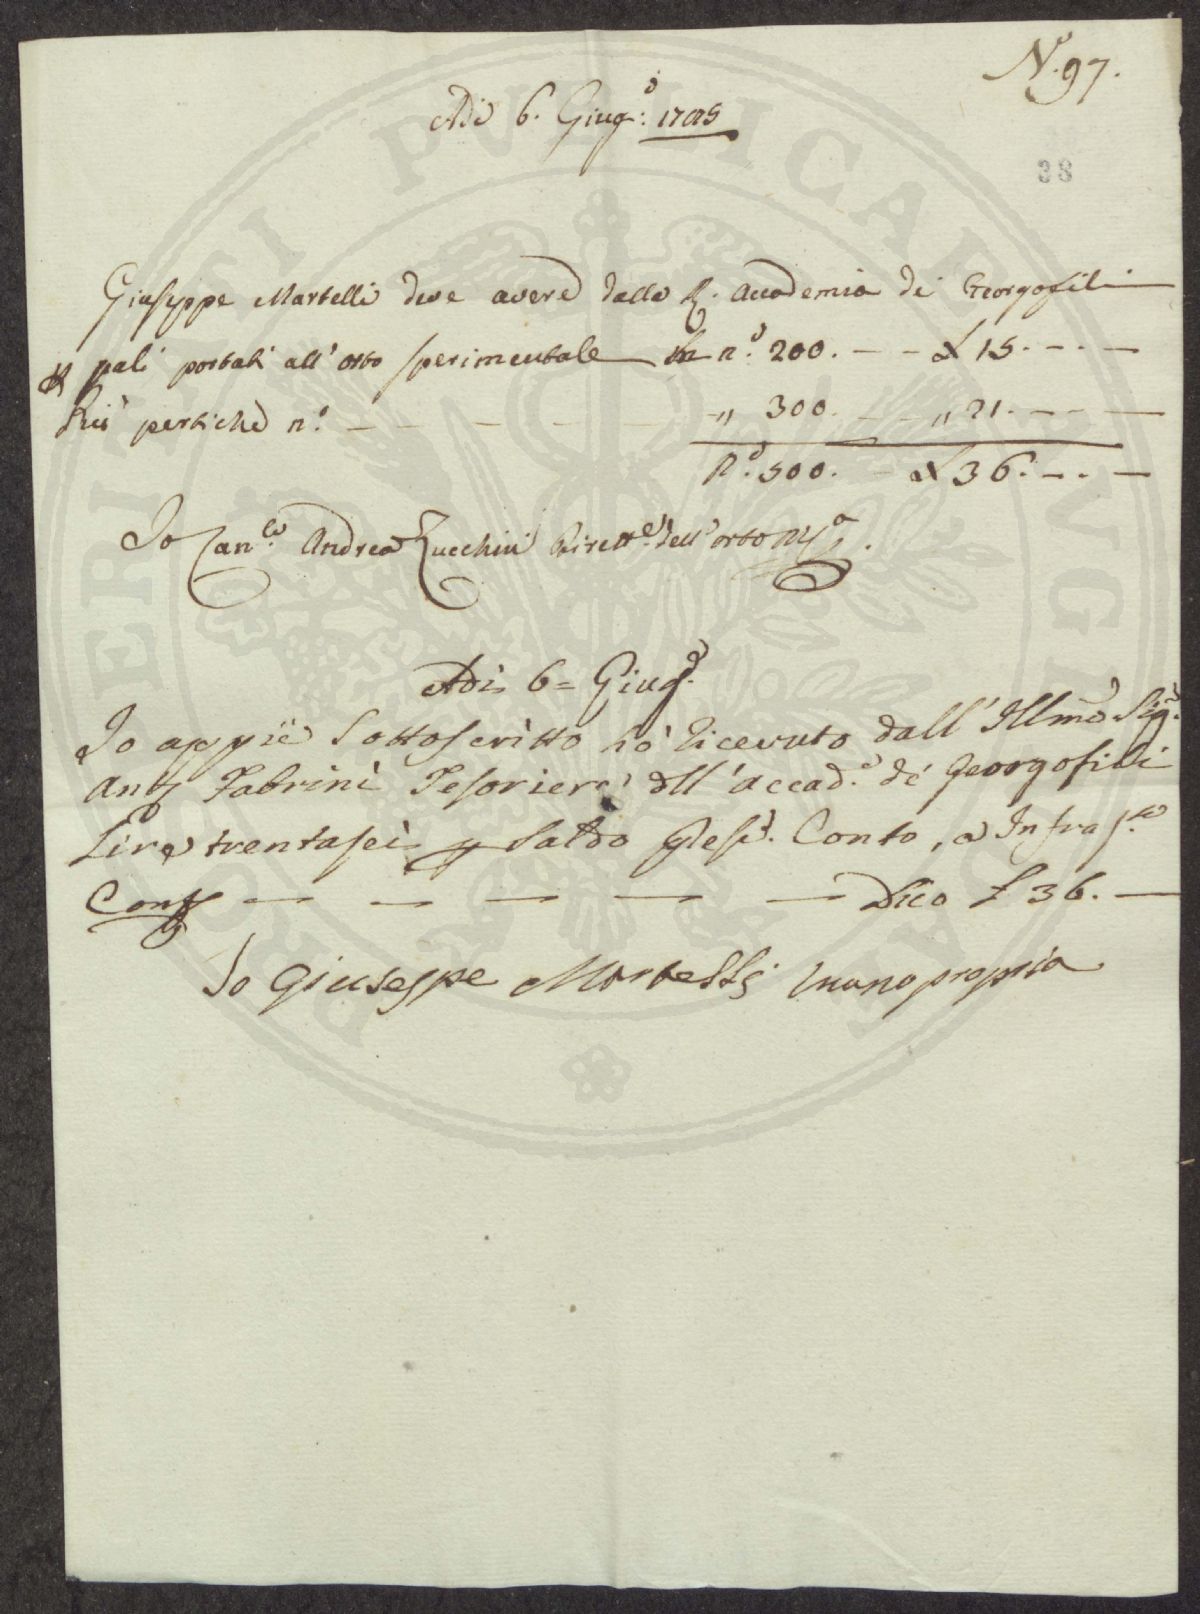 N.º 97.
Adi 6. Giug.º: 1785
38
Giuseppe Martelli deve avere dalla R. Accademia de Georgofili
pali portati all' orto sperimentale n.º 200. - - £ 15. - - -
Più pertiche n.º - - - - - „ 300. - - „ 21. - - -
N.º 500. - £ 36. - - -
Io Can.co Andrea Zucchini Dirett.e dell' orto
Adi 6= Giug.º
Io appiè Sottoscritto hò ricevuto dall' Illmo Sig.
Ant. Fabrini Tesoriere dell' accad.ª de' Georgofili
Lire trentasei p Saldo Conto, e Infras.tto
Cont - - - - - Dico £ 36. -
Io Giuseppe Martelli mano propria
PVBLICAE
PROSPERITATI